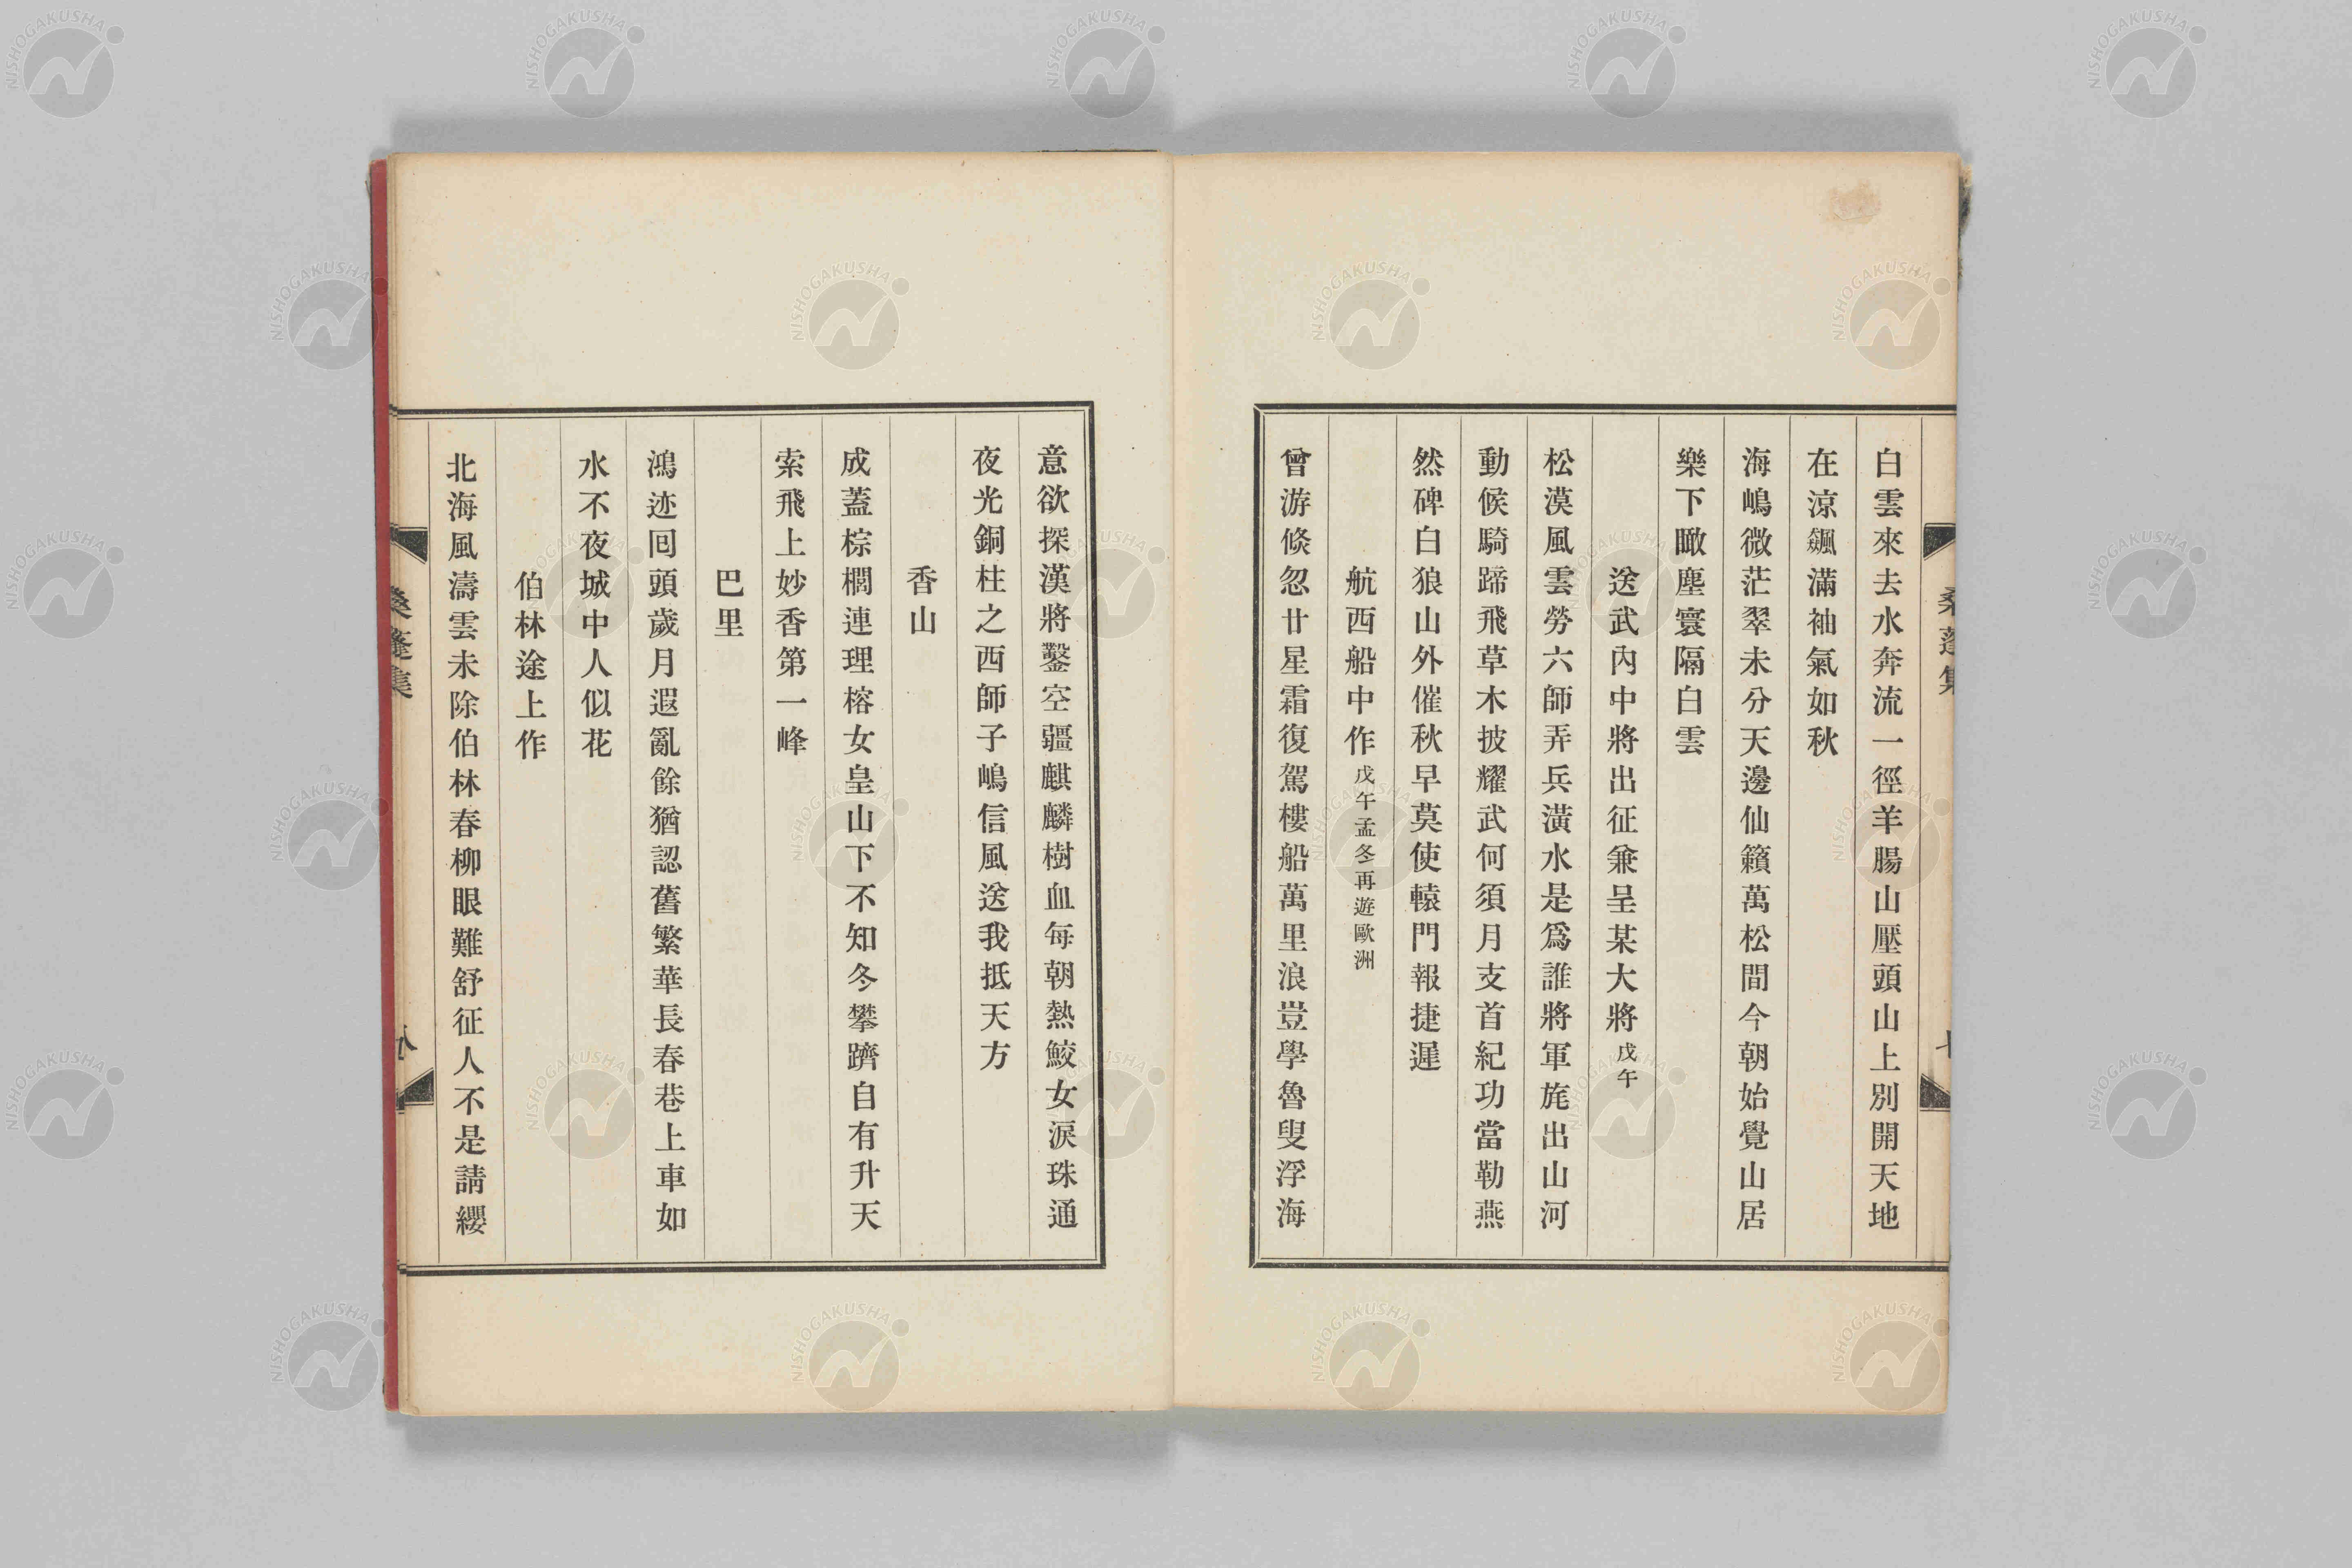 白雲來去水奔流一徑羊腸山壓頭山上別開天地
在涼飆滿袖氣如秋
海嶋微茫翠未分天邊仙籟萬松間今朝始覺山居
樂下瞰塵寰隔白雲
送武內中將出征兼呈某大將戊午
松漠風雲勞六師弄兵潢水是爲誰將軍旄出山河
動候騎蹄飛草木披耀武何須月支首紀功當勒燕
然碑白狼山外催秋早莫使轅門報捷遲
航西船中作戊午孟冬再遊歐洲
曾游倐忽廿星霜復駕樓船萬里浪豈學魯叟浮海
意欲探漢將鑿空疆麒麟樹血每朝熱鮫女淚珠通
夜光銅柱之西師子嶋信風送我抵天方
香山
成蓋棕櫚連理榕女皇山下不知冬攀躋自有升天
索飛上妙香第一峰
巴里
鴻迹回頭歲月遐亂餘猶認舊繁華長春巷上車如
水不夜城中人似花
伯林途上作
北海風濤雲未除伯林春柳眼難舒征人不是請纓
桑蓬集
八
NISHOGAKUSHA